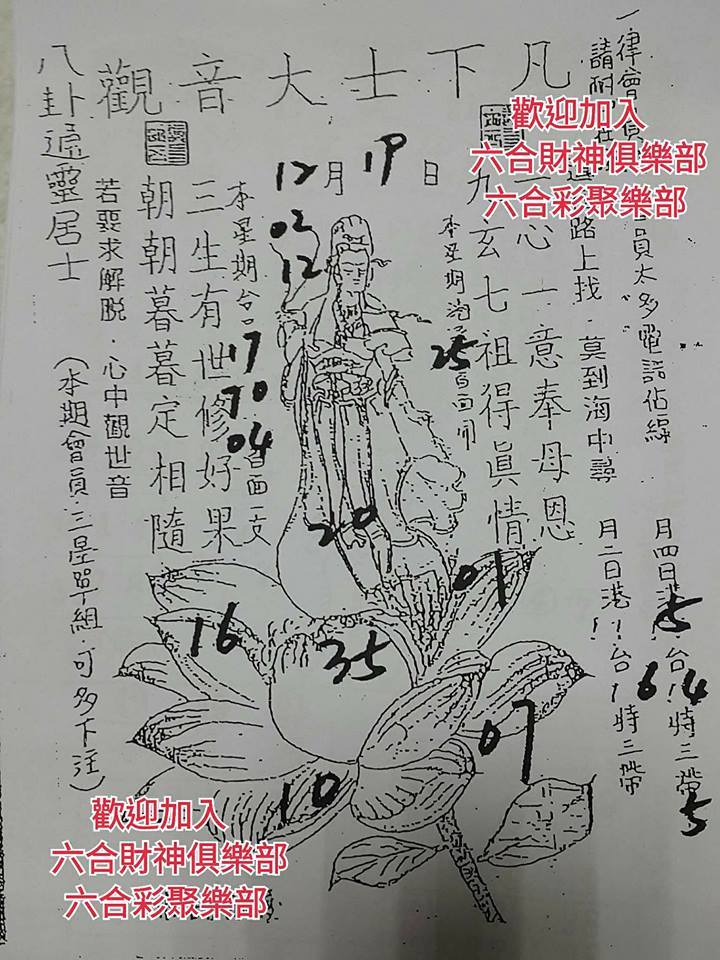 凡下士大音觀
八卦遁靈居士
12月19日
一心一意奉母恩
九玄七祖得真情
三生有世修好果
朝朝暮暮定相隨
若要求解脫．心中觀世音
(本期會員三星單組 可多下注)
路上找．莫到海中尋
員太多電話佔線
本星期
25
本星期台
02
12
17
70
04
百面一支
20
01
16
35
07
10
月四日港
5
台
64
特三帶
5
月二日港！台！特三帶
歡迎加入
六合財神俱樂部
六合彩聚樂部
歡迎加入
六合財神俱樂部
六合彩聚樂部